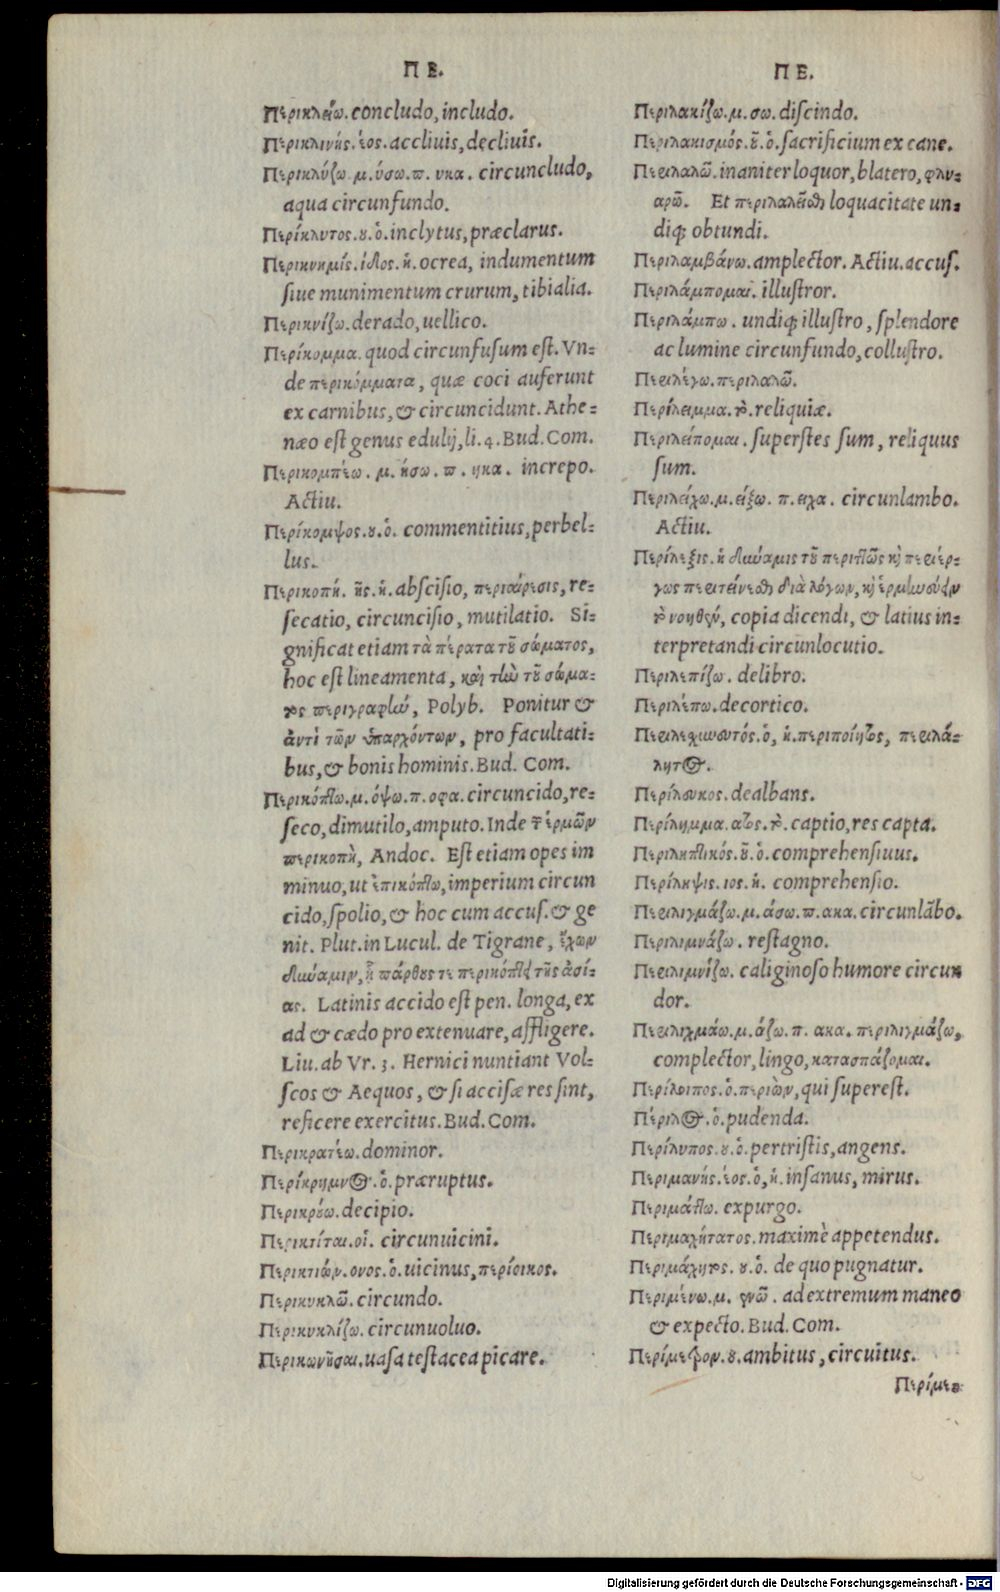 Π Ε.
Περικλείω. concludo, includo.
Περικλινής. έος. accliuis, decliuis.
Περικλύζω. μ. ύσω. π. υκα. circuncludo,
aqua circunfundo.
Περίκλυτος. ου. ὁ. inclytus, præclarus.
Περικνημίς. ίδος. ἡ. ocrea, indumentum
siue munimentum crurum, tibialia.
Περικνίζω. derado, uellico.
Περίκομμα. quod circunfusum est. Vn=
de περικόμματα, quæ coci auferunt
ex carnibus, & circuncidunt. Athe=
næo est genus edulij, li. 4. Bud. Com.
Περικομπέω. μ. ήσω. π. ηκα. increpo.
Actiu.
Περίκομψος. ου. ὁ. commentitius, perbel=
lus.
Περικοπή. ῆς. ἡ. abscisio, περιαίρεσις, re=
secatio, circuncisio, mutilatio. Si=
gnificat etiam τὰ πέρατα τοῦ σώματος,
hoc est lineamenta, καὶ τὴν τοῦ σώμα=
τος περιγραφὴν, Polyb. Ponitur &
ἀντὶ τῶν ὑπαρχόντων, pro facultati=
bus, & bonis hominis. Bud. Com.
Περικόπτω. μ. όψω. π. οφα. circuncido, re=
seco, dimutilo, amputo. Inde τῶν ἑρμῶν
περικοπὴ, Andoc. Est etiam opes im
minuo, ut ἐπικόπτω, imperium circun
cido, spolio, & hoc cum accus. & ge
nit. Plut. in Lucul. de Tigrane, ἔχων
δύναμιν, ᾗ πάρθους τε περικόπτει τῆς ἀσί=
ας. Latinis accido est pen. longa, ex
ad & cædo pro extenuare, affligere.
Liu. ab Vr. 3. Hernici nuntiant Vol=
scos & Aequos, & si accisæ res sint,
reficere exercitus. Bud. Com.
Περικρατέω. dominor.
Περίκρημνος. ὁ. præruptus.
Περικρούω. decipio.
Περικτίται. οἱ. circunuicini.
Περικτιών. ονος. ὁ. uicinus, περίοικος.
Περικυκλῶ. circundo.
Περικυκλίζω. circunuoluo.
Περικωνῆσαι. uasa testacea picare.
Π Ε.
Περιλακίζω. μ. σω. discindo.
Περιλακισμός. οῦ. ὁ. sacrificium ex cane.
Περιλαλῶ. inaniter loquor, blatero, φλυ=
αρῶ. Et περιλαλεῖσθαι loquacitate un=
diq; obtundi.
Περιλαμβάνω. amplector. Actiu. accus.
Περιλάμπομαι. illustror.
Περιλάμπω. undiq; illustro, splendore
ac lumine circunfundo, collustro.
Περιλέγω. περιλαλῶ.
Περίλειμμα. τὸ. reliquiæ.
Περιλείπομαι. superstes sum, reliquus
sum.
Περιλείχω. μ. είξω. π. ειχα. circunlambo.
Actiu.
Περίλεξις. ἡ δύναμις τοῦ περιττῶς καὶ περιέρ=
γως περιτείνεσθαι διὰ λόγων, καὶ ἑρμηνεύειν
τὸ νοηθέν, copia dicendi, & latius in=
terpretandi circunlocutio.
Περιλεπίζω. delibro.
Περιλέπω. decortico.
Περιλεχηνευτός. ὁ, ἡ. περιποίητος, περιλά=
λητος.
Περίλευκος. dealbans.
Περίλημμα. ατος. τὸ. captio, res capta.
Περιληπτικός. οῦ. ὁ. comprehensiuus.
Περίληψις. ιος. ἡ. comprehensio.
Περιλιγμάζω. μ. άσω. π. ακα. circunlãbo.
Περιλιμνάζω. restagno.
Περιλιμνίζω. caliginoso humore circun
dor.
Περιλιχμάω. μ. άζω. π. ακα. περιλιγμάζω,
complector, lingo, κατασπάζομαι.
Περίλοιπος. ὁ. περιὼν, qui superest.
Πέριλος. ὁ. pudenda.
Περίλυπος. ου. ὁ. pertristis, angens.
Περιμανής. έος. ὁ, ἡ. insanus, mirus.
Περιμάττω. expurgo.
Περιμαχήτατος. maximè appetendus.
Περιμάχητος. ου. ὁ. de quo pugnatur.
Περιμένω. μ. ενῶ. ad extremum maneo
& expecto. Bud. Com.
Περίμετρον. ου. ambitus, circuitus.
Περίμε=
Digitalisierung gefördert durch die Deutsche Forschungsgemeinschaft - DFG